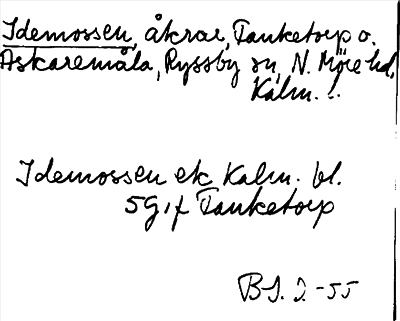 Idemossen, åkrar, Tanketorp o.
Askaremåla, Ryssby sn, N. Möre hd,
Kalm. l.
Idemossen ek Kalm. bl.
5 g, f Tanketorp
BS. 2.-55